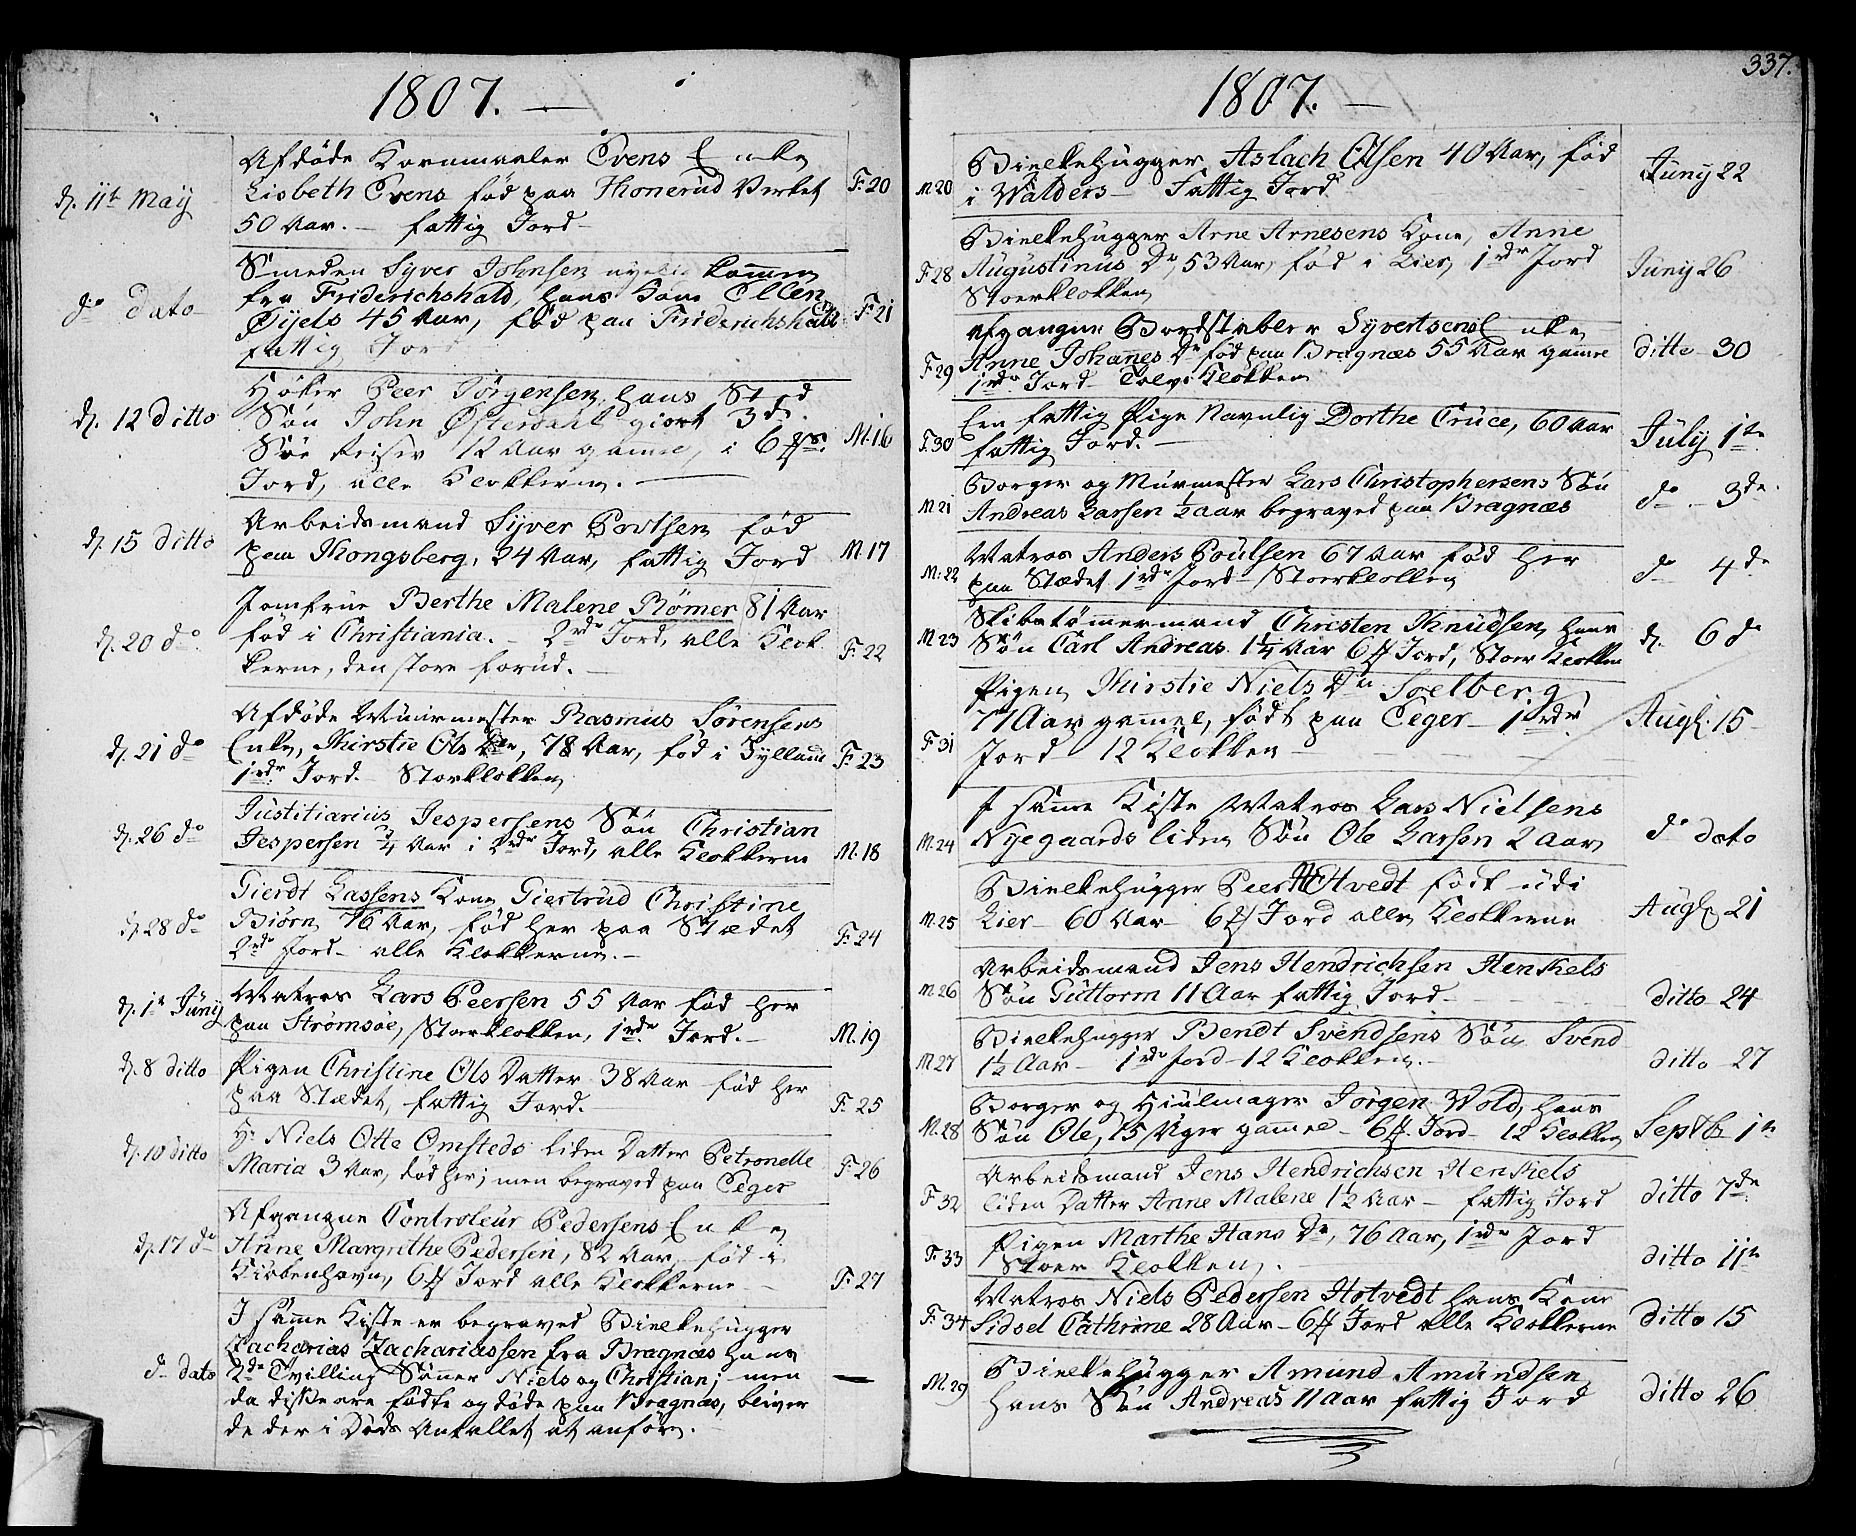 1807. —
d. 11te May
Afdöde Kornmaaler Evens Enke
Lisbeth Evens fød paa Honerud Verket
50 Aar. — fattig Jord —
F. 20
do dato
Smeden Syver Johnsen nyelig kommen
fra Friderichshald, hans Kone Ellen
Gijels 45 Aar, fød paa Friderichshald
fattig Jord
F. 21
d. 12 ditto
Høker Peer Jörgensen, hans Sted
Søn John Østerdahl giort 3de
Søe Reiser 12 Aar gamle, i 6 ß
Jord, alle Klokkerne. —
M. 16
d. 15 ditto
Arbeidsmand Syver Povlsen fød
paa Kongsberg, 24 Aar, fattig Jord
M. 17
d. 20 do
Jomfrue Berthe Malene Römer 81 Aar
fød i Christiania. — 2rde Jord, alle Klok
kerne, den store forud. —
F. 22
d. 21 do
Afdöde Muurmester Rasmus Sörensens
Enke, Kirstie Ols Dtr, 78 Aar, fød i Jylland
1rde Jord — Storklokken
F. 23
d. 26 do
Justitiarius Jespersens Søn Christian
Jespersen 3/4 Aar i 2rde Jord, alle Klokkerne
M. 18
d. 28 do
Gierdt Lassens Kone Giertrud Christine
Biörn 76 Aar, fød her paa Stædet
2rde Jord — alle Klokkerne. —
F. 24
d. 1te Juny
Matros Lars Peersen 55 Aar fød her
paa Strømsøe, Stoerklokken, 1rde Jord. —
M. 19
d. 8 ditto
Pigen Christine Ols Datter 38 Aar fød her
paa Stædet, fattig Jord. —
F. 25
d. 10 ditto
Hr Niels Otte Omsteds liden Datter Petronelle
Maria 3 Aar, død her; men begraved paa Eeger
F. 26
d. 17 do
Afgangne Controleur Pedersens Enke
Anne Margrethe Pedersen, 82 Aar, fød i
Kiöbenhavn, 6 ß Jord alle Klokkerne —
F. 27
do dato
I samme Kiste er begraved Bielkehugger
Zacharias Zachariassen fra Bragnæs hans
2de Tvilling Sønner Niels og Christian; men
da disse ere fødte og døde paa Bragnæs, bliver
de der i Døds Antallet at anföre. —
—
337.
1807. —
M 20
Bielkehugger Aslach Olsen 40 Aar, fød
i Walders — Fattig Jord
Juny 22
F. 28
Bielkehugger Arne Arnesens Kone, Anne
Augustinus Dr, 53 Aar, fød i Lier, 1rde Jord
Stoerklokken
Juny 26
F. 29
Afgangne Bordstabler Syvertsens Enke
Anne Johannes Dr fød paa Bragnæs 55 Aar gamle
1rde Jord — Tolv Klokken
ditto — 30
F. 30
Een fattig Pige Navnlig Dorthe Truce, 60 Aar
fattig Jord. —
July 1te
M 21
Borger og Muurmester Lars Christophersens Søn
Andreas Larsen 1/2 Aar begraved paa Bragnæs
do — 3de
M: 22
Matros Anders Poulsen 67 Aar fød her
paa Stædet 1rde Jord — Stoerklokken
do 4de
M. 23
Skibstømmermand Christen Knudsen hans
Søn Carl Andreas 1 1/4 Aar 6 ß Jord, Stoer Klokken
d. 6 do
F. 31
Pigen Kirstie Niels Dr Soelberg
77 Aar gammel, født paa Eeger — 1rde
Jord 12 Klokken —
Augs. 15
M. 24
I samme Kiste Matros Lars Nielsens
Nyegaards liden Søn Ole Larsen 2 Aar
do dato
M. 25
Bielkehugger Peer Hotvedt født udi
Lier — 60 Aar — 6 ß Jord alle Klokkerne
Augs. 21
M. 26
Arbeidsmand Jens Hendrichsen Henkels
Søn Guttorm 11 Aar fattig Jord —
ditto 24
M 27
Bielkehugger Bendt Svendsens Søn Svend
1 1/2 Aar — 1rde Jord — 12 Klokken. —
ditto 27
M. 28
Borger og Hiulmager Jörgen Wold, hans
Søn Ole, 15 Uger gamle — 6 ß Jord — 12 Klokken
Septb. 1te
F 32
Arbeidsmand Jens Hendrichsen Henkels
liden Datter Anne Malene 1 1/2 Aar — fattig Jord
ditto 7de
F. 33
Pigen Marthe Hans Dr, 76 Aar, 1rde Jord
Stoer Klokken. —
ditto 11te
F. 34
Matros Niels Pedersen Hotvedt hans Kone
Sidsel Cathrine 28 Aar — 6 ß Jord alle Klokkerne
ditto 15
M. 29
Bielkehugger Amund Amundsen
hans Søn Andreas 11 Aar fattig Jord
ditto 26